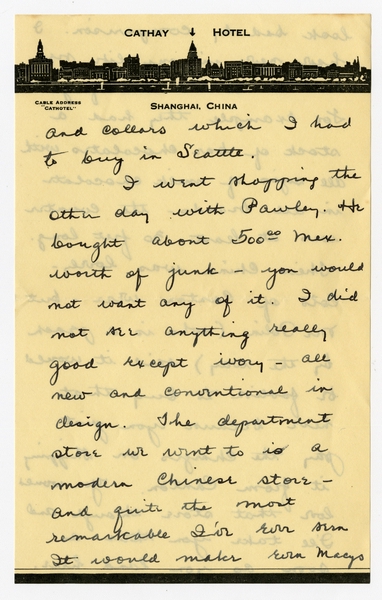 CATHAY HOTEL
CABLE ADDRESS
"CATHOTEL"
SHANGHAI, CHINA
and collars which I had
to buy in Seattle.
I went shopping the
other day with Pawley. He
bought about 500⁰⁰ Mex.
worth of junk – you would
not want any of it. I did
not see anything really
good except ivory – all
new and conventional in
design. The department
store we went to is a
modern Chinese store –
and quite the most
remarkable I've ever seen
It would make even Macys